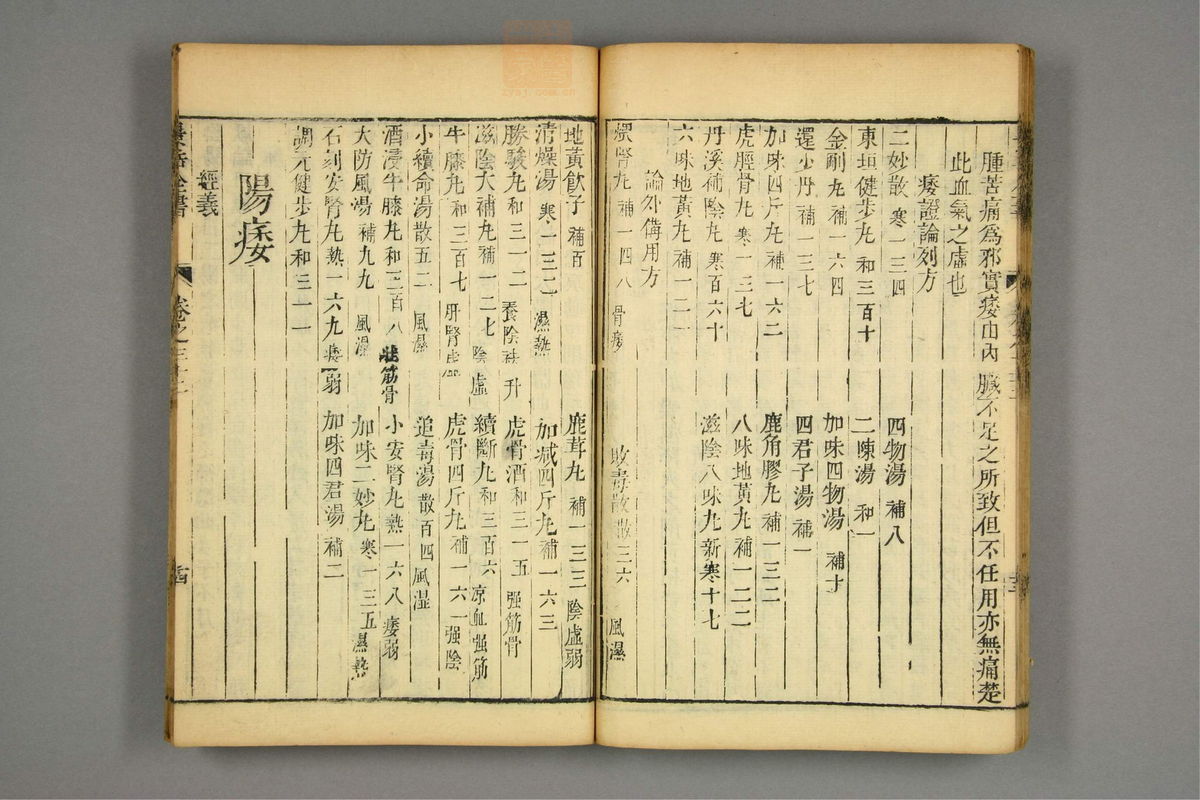 腫苦痛爲邪實痿由內臟不足之所致但不任用亦無痛楚
此血氣之虛也
痿證論列方
二妙散 寒一三四 四物湯 補八
東垣健步丸 和三百十 二陳湯 和一
金剛丸 補一六四 加味四物湯 補十
還少丹 補一三七 四君子湯 補一
加味四斤丸 補一六二 鹿角膠丸 補一三二
虎脛骨丸 寒一三七 八味地黃丸 補一二二
丹溪補陰丸 寒百六十 滋陰八味丸 新寒十七
六味地黃丸 補一二一
論外備用方
煨腎丸 補一四八 骨痿 敗毒散 散三六 風濕
地黃飲子 補百 鹿茸丸 補一三三 陰虛弱
清燥湯 寒一三二 濕熱 加減四斤丸 補一六三
勝駿丸 和三一二 養陰 虎骨酒 和三一五 強筋骨
滋陰大補丸 補一二七 陰虛 續斷丸 和三百六 凉血強筋
牛膝丸 和三百七 肝腎虛 虎骨四斤丸 補一六一 強陰
小續命湯 散五二 風濕 追毒湯 散百四 風濕
酒浸牛膝丸 和三百八 壯筋骨 小安腎丸 熱一六八 痿弱
大防風湯 補九九 風濕 加味二妙丸 寒一三五 濕熱
石刻安腎丸 熱一六九 痿弱 加味四君湯 補二
調元健步丸 和三一一
陽痿
經義
景岳全書
卷之三十二